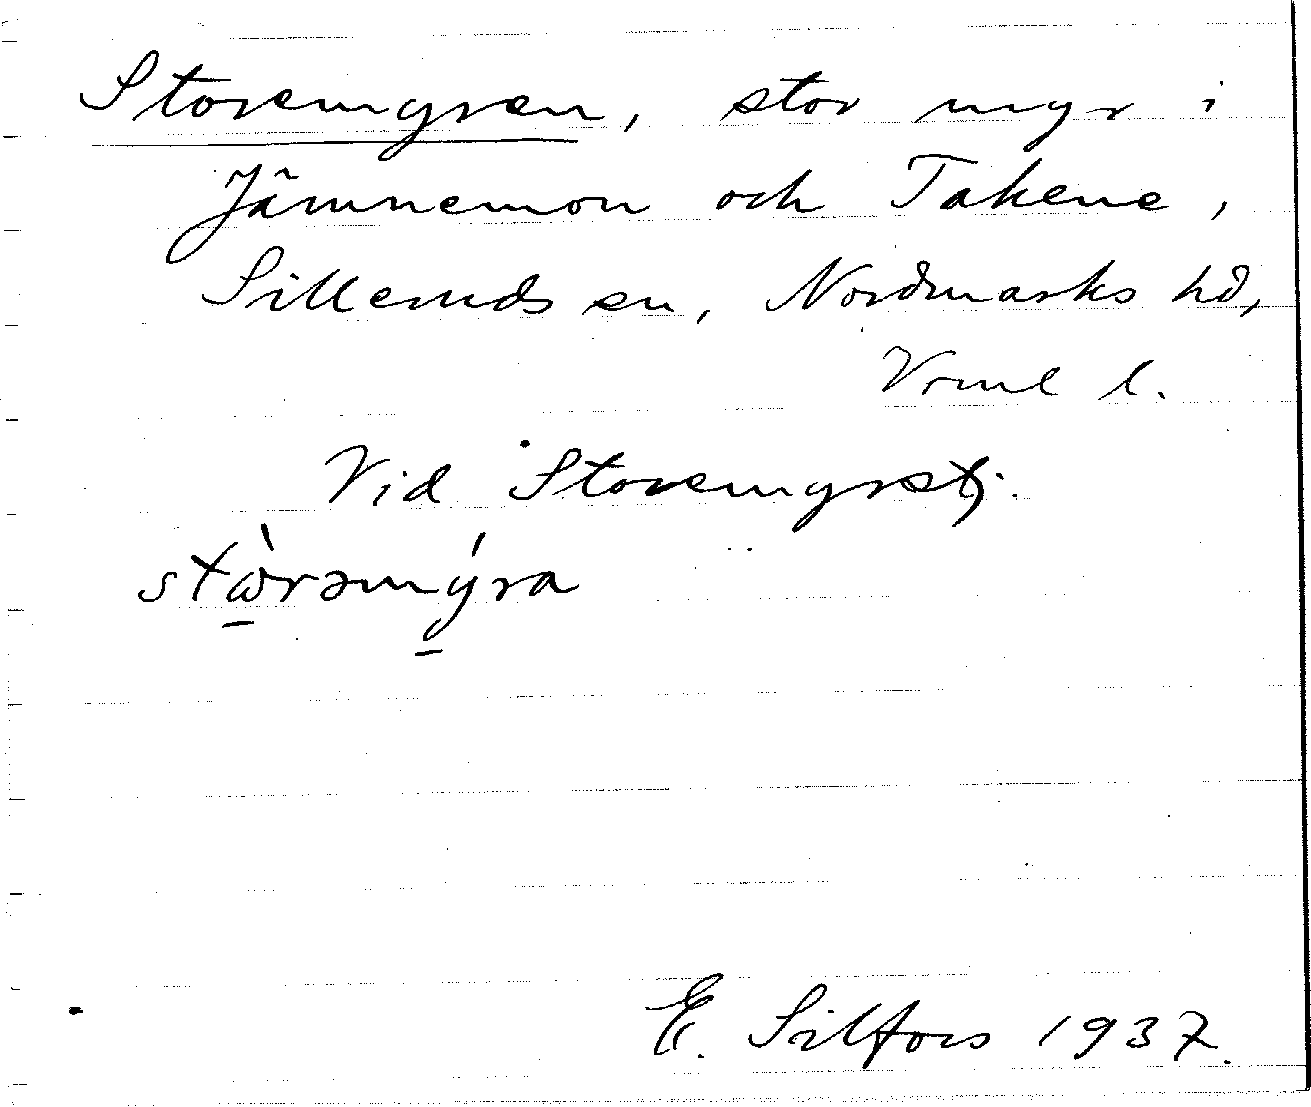 Storemyren, stor myr i
Jämnemon och Takene,
Silleruds sn, Nordmarks hd,
Vrml l.
Vid Storemyrstj.
stὼrəmýra
E. Silfors 1937.